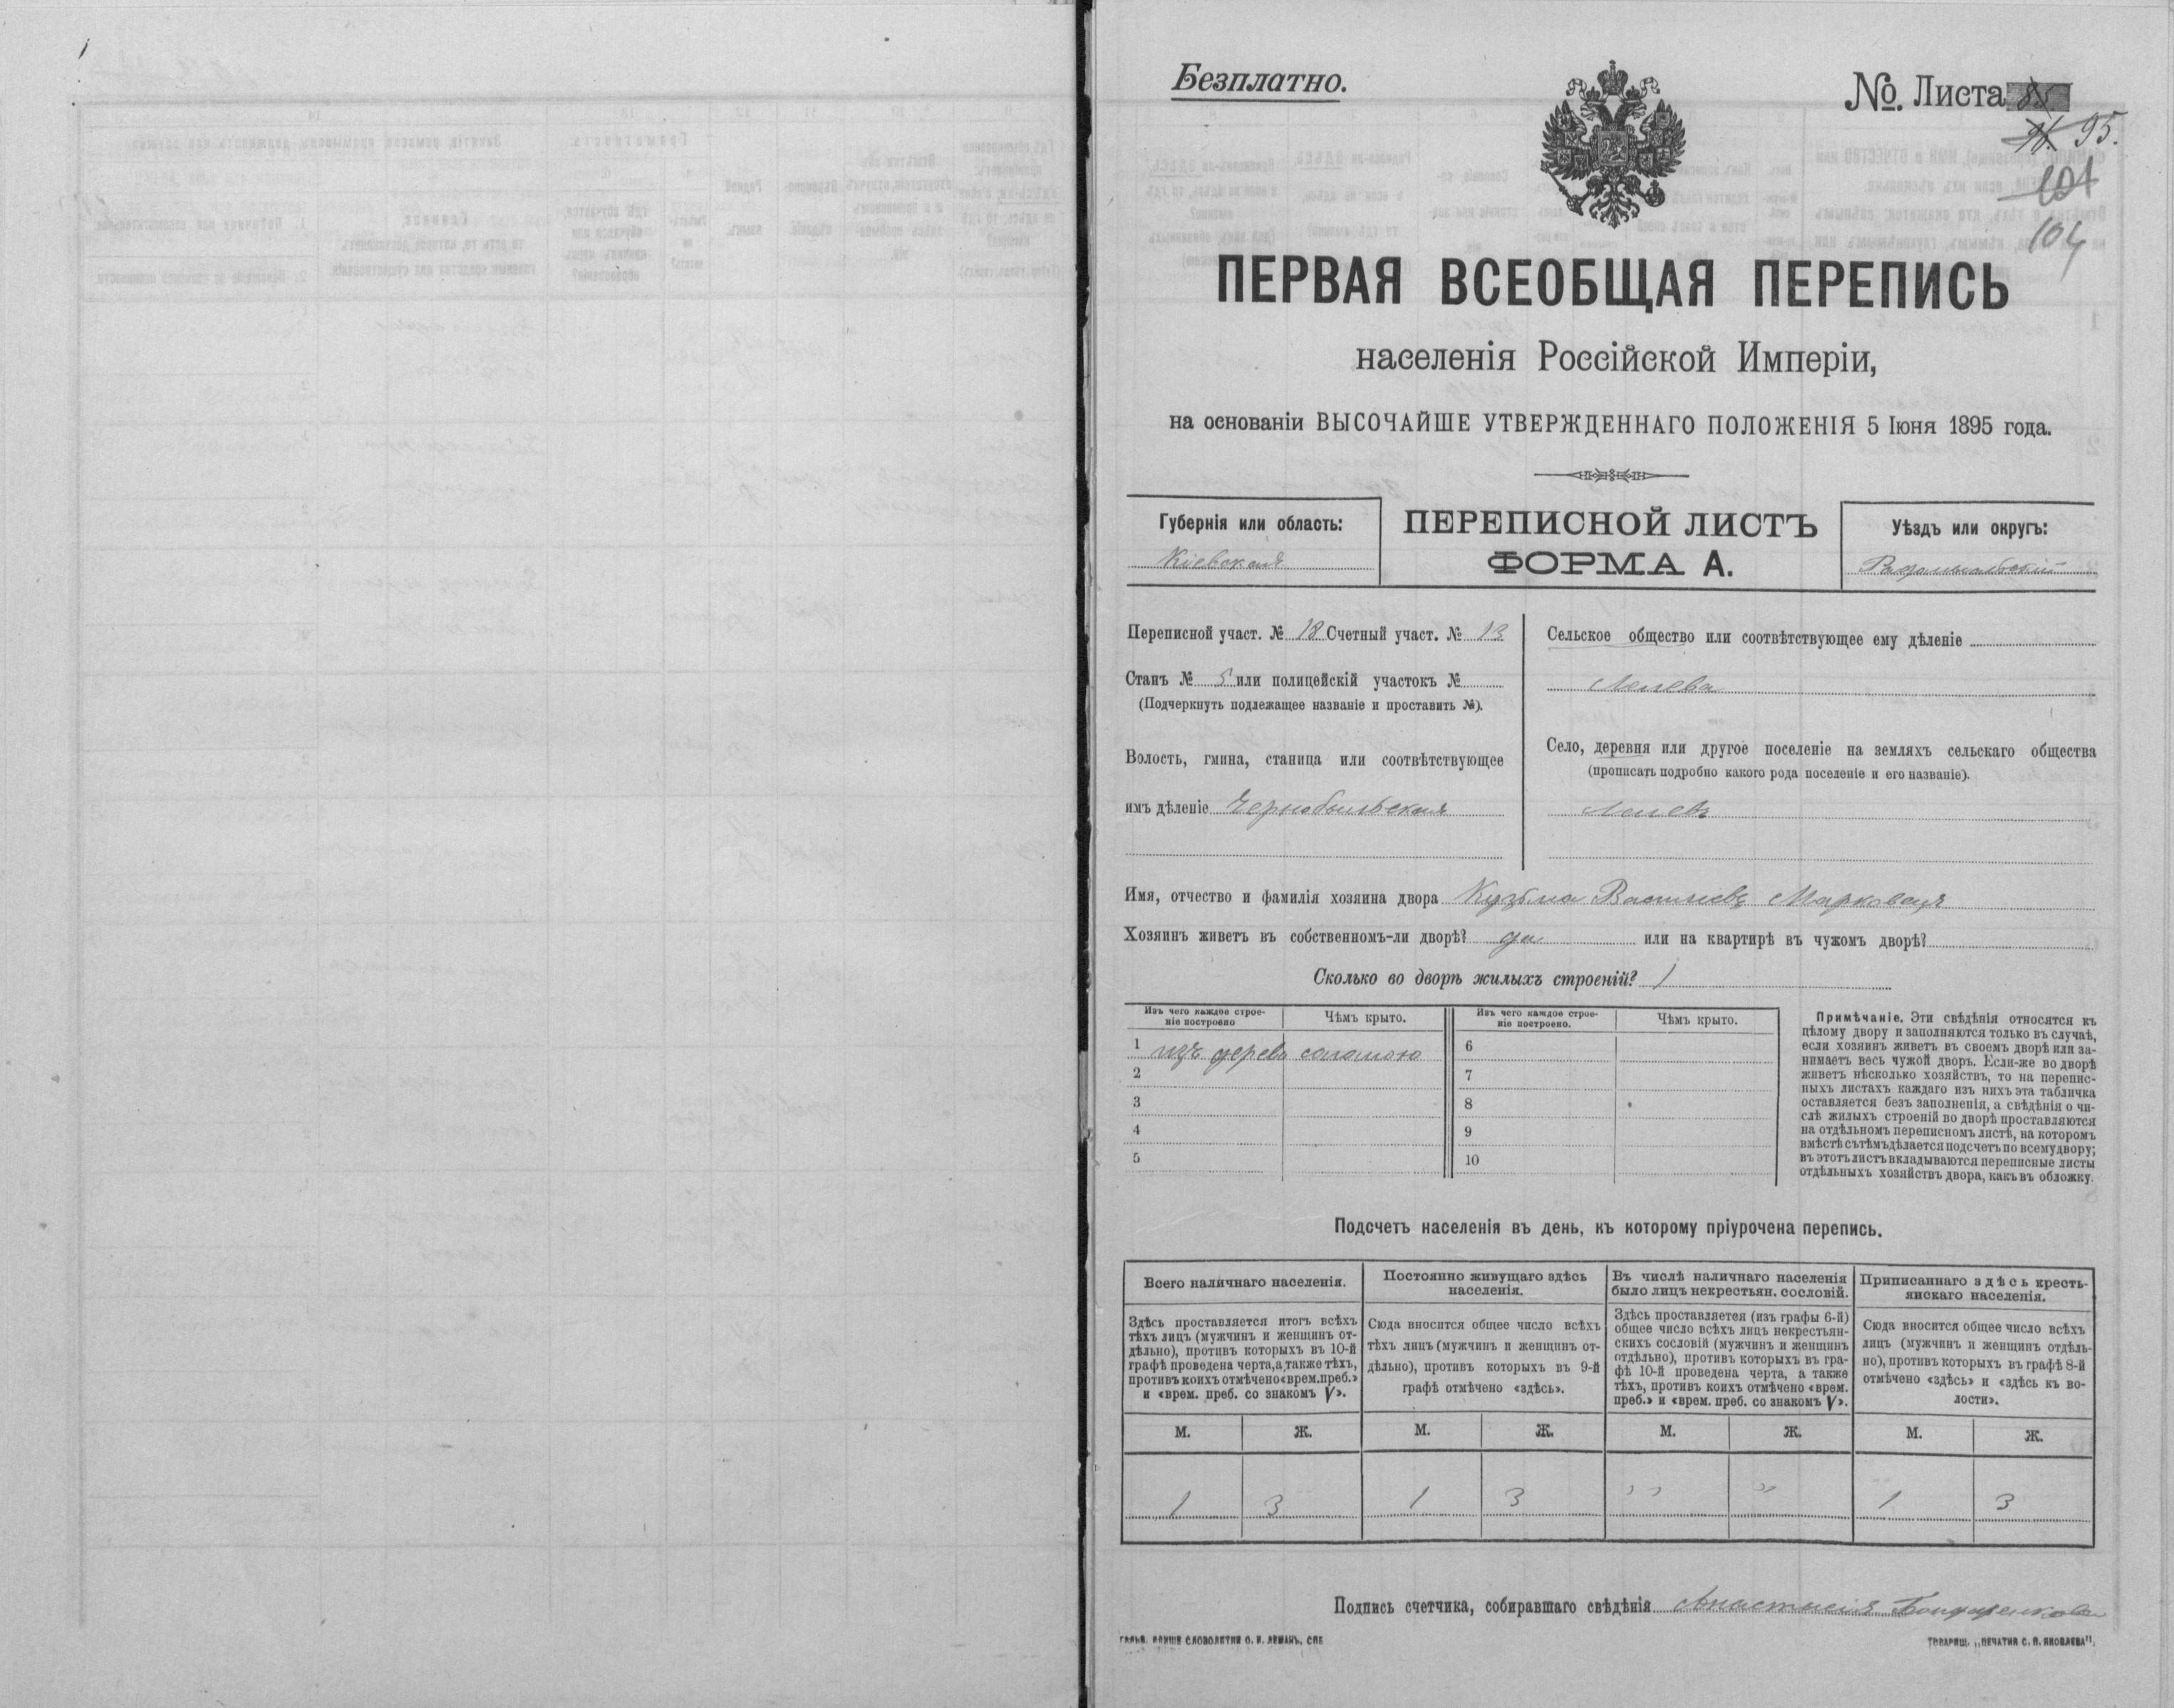 Безплатно.
№. Листа
95.
101
104
ПЕРВАЯ ВСЕОБЩАЯ ПЕРЕПИСЬ
населенія Россійской Имперіи,
на основаніи ВЫСОЧАЙШЕ УТВЕРЖДЕННАГО ПОЛОЖЕНІЯ 5 Іюня 1895 года.
Губернія или область:
Кіевская
ПЕРЕПИСНОЙ ЛИСТЪ
ФОРМА А.
Уѣздъ или округъ:
Радомысльскій
Переписной участ. № 18 Счетный участ. № 13
Станъ № 5 или полицейскій участокъ №
(Подчеркнуть подлежащее названіе и проставить №).
Волость, гмина, станица или соотвѣтствующее
имъ дѣленіе Чернобыльская
Сельское общество или соотвѣтствующее ему дѣленіе
Лелева
Село, деревня или другое поселеніе на земляхъ сельскаго общества
(прописать подробно какого рода поселеніе и его названіе).
Лелевъ
Имя, отчество и фамилія хозяина двора Кузьма Васильевъ Марковецъ
Хозяинъ живетъ въ собственномъ-ли дворѣ? да или на квартирѣ въ чужомъ дворѣ?
Сколько во дворѣ жилыхъ строеній? 1
Изъ чего каждое строе-
ніе построено
Чѣмъ крыто.
Изъ чего каждое строе-
ніе построено.
Чѣмъ крыто.
1 изъ дерева соломою
2
3
4
5
6
7
8
9
10
Примѣчаніе. Эти свѣдѣнія относятся къ
цѣлому двору и заполняются только въ случаѣ,
если хозяинъ живетъ въ своемъ дворѣ или за-
нимаетъ весь чужой дворъ. Если-же во дворѣ
живетъ нѣсколько хозяйствъ, то на перепис-
ныхъ листахъ каждаго изъ нихъ эта табличка
оставляется безъ заполненія, а свѣдѣнія о чи-
слѣ жилыхъ строеній во дворѣ проставляются
на отдѣльномъ переписномъ листѣ, на которомъ
вмѣстѣ съ тѣмъ дѣлается подсчетъ по всему двору;
въ этотъ листъ вкладываются переписные листы
отдѣльныхъ хозяйствъ двора, какъ въ обложку.
Подсчетъ населенія въ день, къ которому пріурочена перепись.
Всего наличнаго населенія.
Здѣсь проставляется итогъ всѣхъ
тѣхъ лицъ (мужчинъ и женщинъ от-
дѣльно), противъ которыхъ въ 10-й
графѣ проведена черта, а также тѣхъ,
противъ коихъ отмѣчено «врем. преб.»
и «врем. преб. со знакомъ V».
Постоянно живущаго здѣсь
населенія.
Сюда вносится общее число всѣхъ
тѣхъ лицъ (мужчинъ и женщинъ от-
дѣльно), противъ которыхъ въ 9-й
графѣ отмѣчено «здѣсь».
Въ числѣ наличнаго населенія
было лицъ некрестьян. сословій.
Здѣсь проставляется (изъ графы 6-й)
общее число всѣхъ лицъ некрестьян-
скихъ сословій (мужчинъ и женщинъ
отдѣльно), противъ которыхъ въ гра-
фѣ 10-й проведена черта, а также
тѣхъ, противъ коихъ отмѣчено «врем.
преб.» и «врем. преб. со знакомъ V».
Приписаннаго здѣсь кресть-
янскаго населенія.
Сюда вносится общее число всѣхъ
лицъ (мужчинъ и женщинъ отдѣль-
но), противъ которыхъ въ графѣ 8-й
отмѣчено «здѣсь» и «здѣсь къ во-
лости».
М. Ж. М. Ж. М. Ж. М. Ж.
1 3 1 3 " " 1 3
Подпись счетчика, собиравшаго свѣдѣнія Анастасія Бондаренкова
СЛОВОЛИТНИ О. И. ЛЕМАНЪ, СПБ
ТОВАРИЩ. „ПЕЧАТНЯ С. П. ЯКОВЛЕВА".